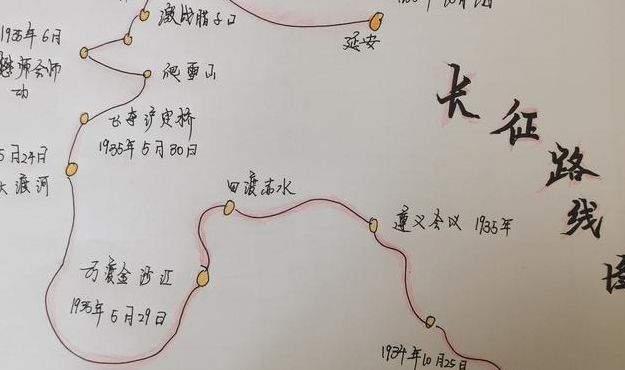 激战腊子口
延安
1935年6月
会师
爬雪山
长征路线图
飞夺泸定桥
1935年5月30日
5月24日
大渡河
四渡赤水
遵义会议 1935年
巧渡金沙江
1935年5月29日
1934年10月25日